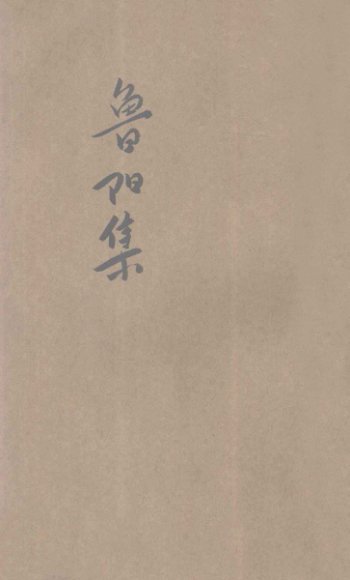 鲁阳集